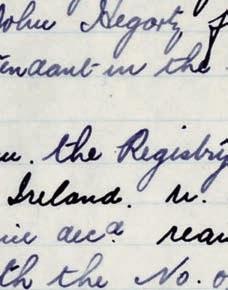 John Hegarty
endant in the
the Registry
Ireland. n.
decd.
th the No. o